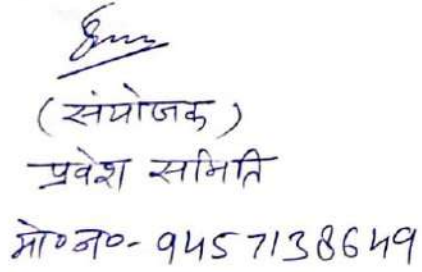 (संयोजक)
प्रवेश समिति
मो०न०- 9457138649